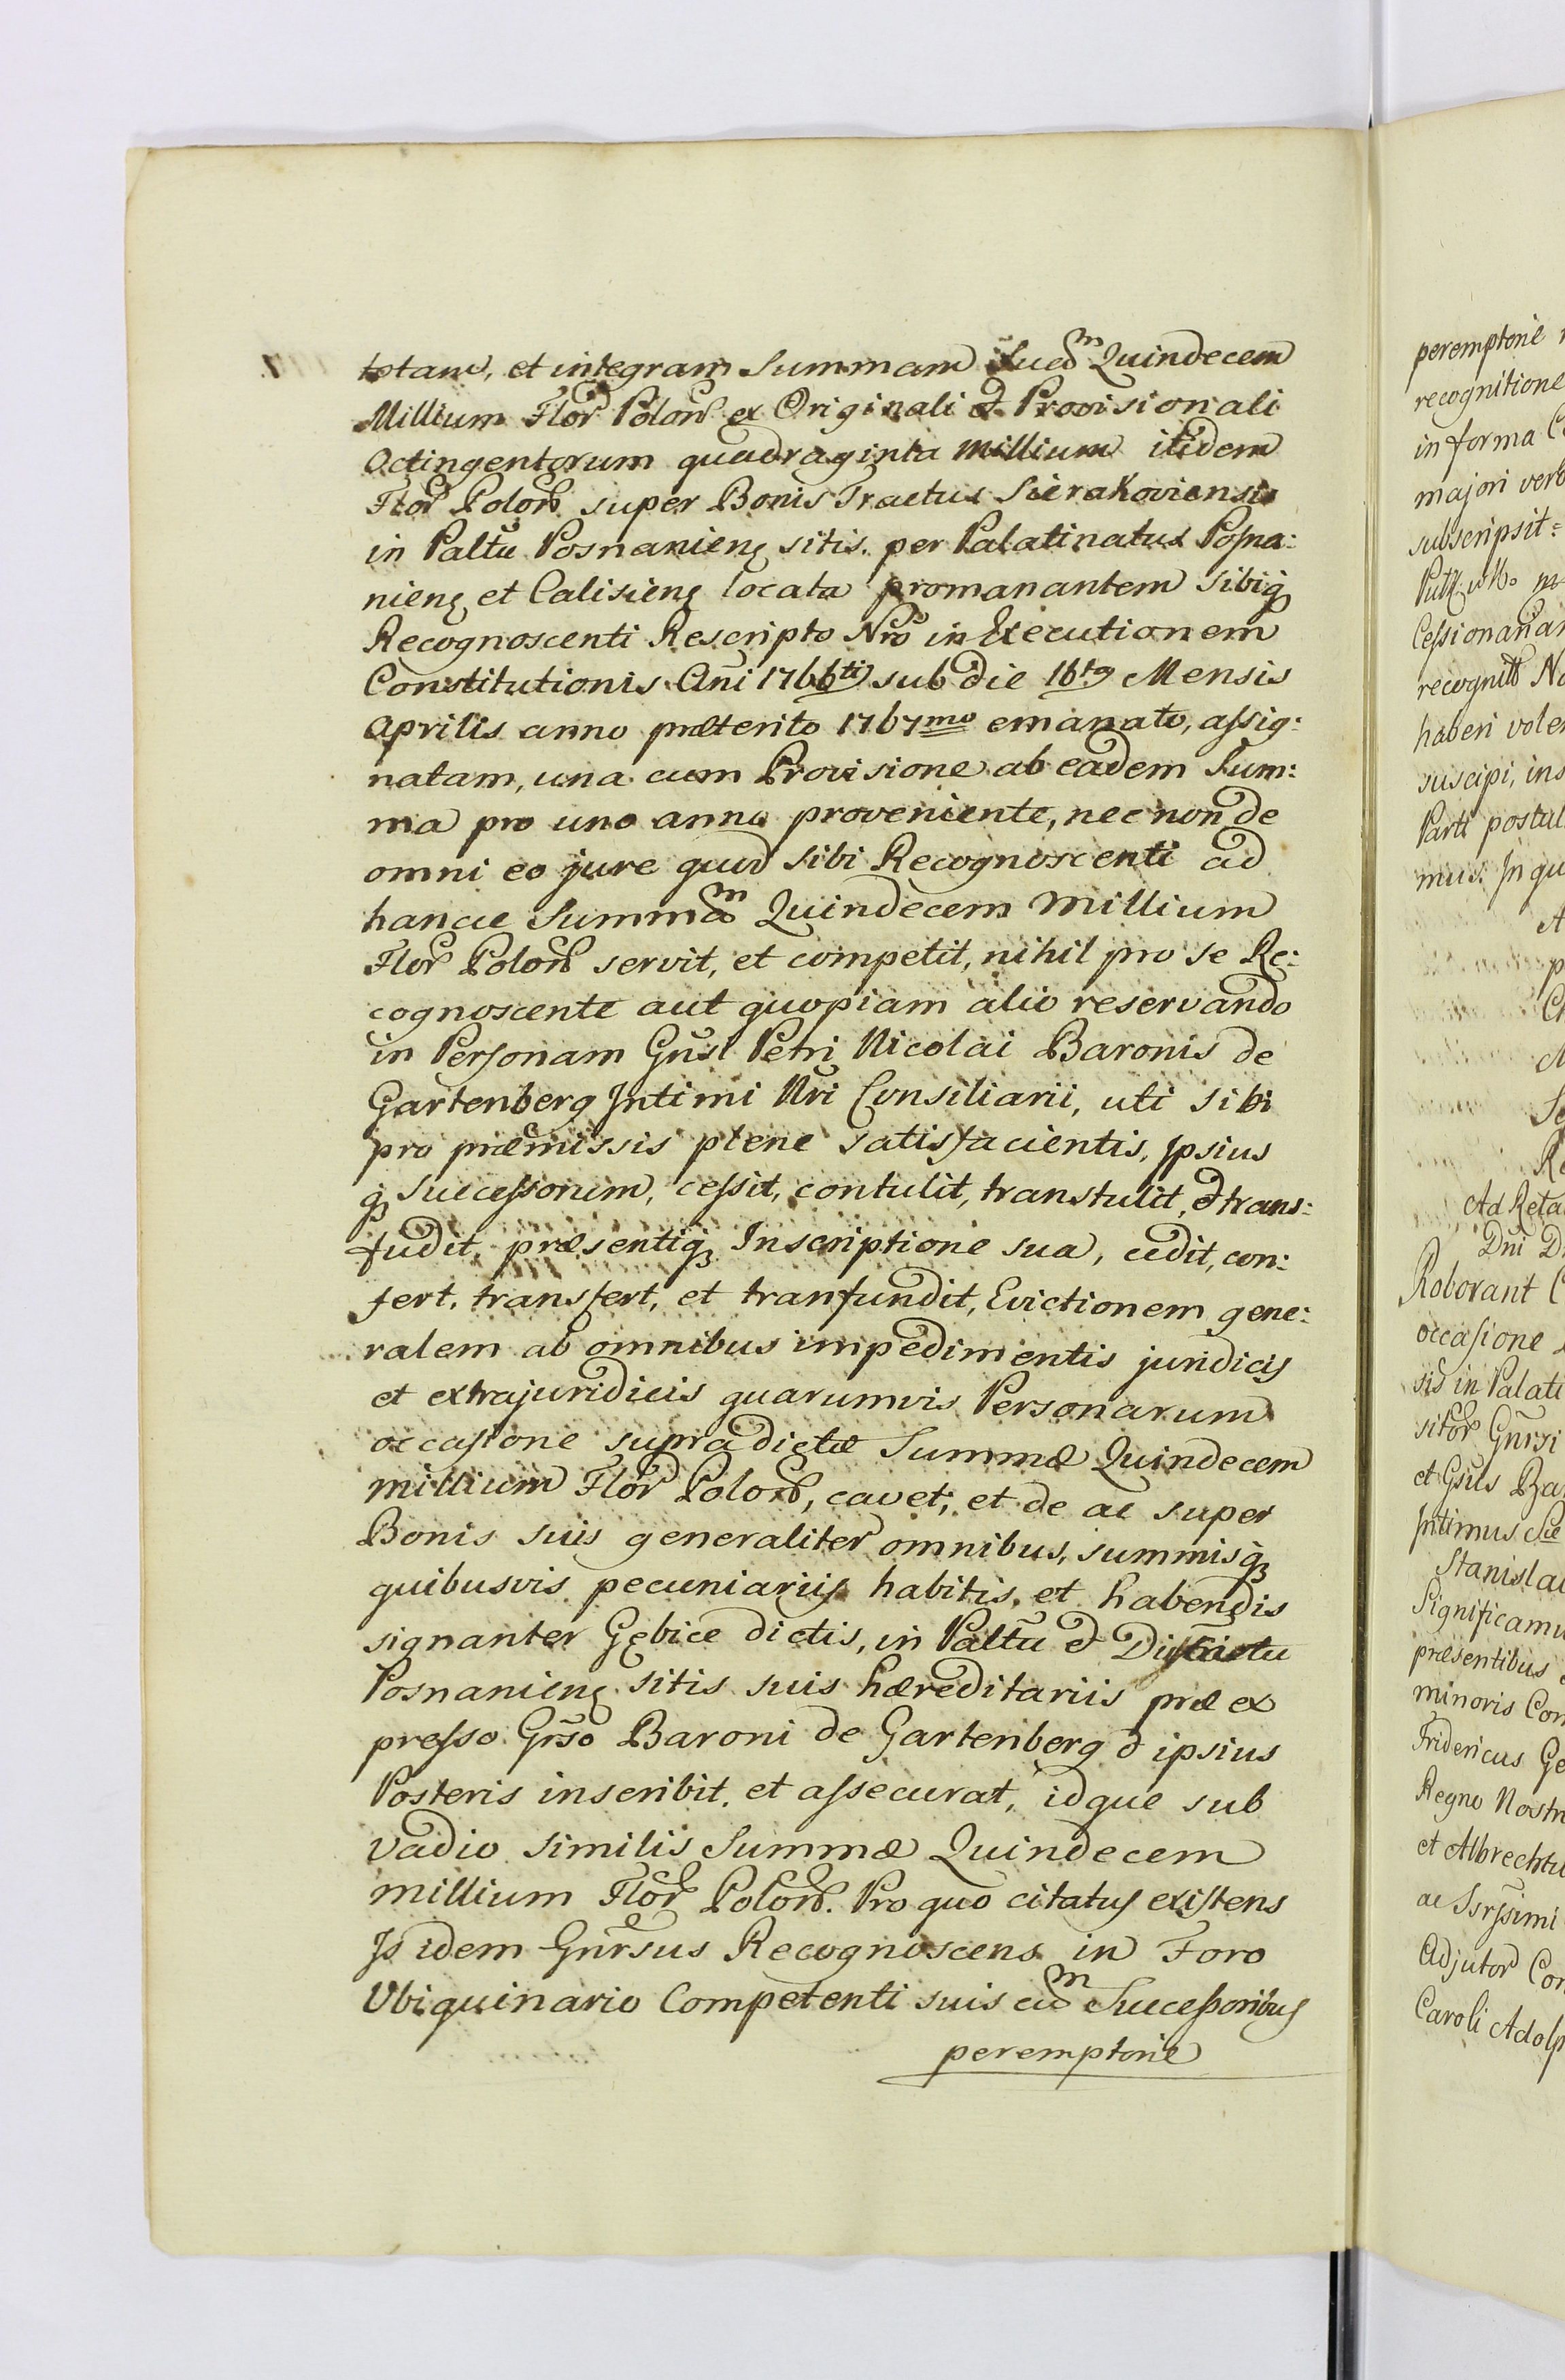 totam, et integram Summam Suam Quindecem
Millium Flor Polon ex Originali et Provisionali
Octingentorum quadraginta Millium itidem
Flor Polon super Bonis Tractus Sierakoviensis
in Palttũ Posnanienẽ sitis per Palatinatus Posna:
nienẽ et Calisienẽ locata promanantem sibiq
Recognoscenti Rescripto Nro in Executionem
Constitutionis Añi 1766ti sub die 16ta Mensis
Aprilis anno præterito 1767mo emanato, assig:
natam, una cum Provisione ab eadem Sum:
ma pro uno anno proveniente, nec non de
omni eo jure quod sibi Recognoscenti ad
hancce Summam Quindecem Millium
Flor Polon servit, et competit, nihil pro se Re:
cognoscente aut quopiam alio reservando
in Personam Gñsi Petri Nicolai Baronis de
Gartenberg Intimi Nri Consiliarii, uti sibi
pro præmissis plene satisfacientis, Ipsius
q Successorum, cessit, contulit, transtulit, et trans:
fudit, præsentiq Inscriptione sua, cedit, con:
fert, transfert, et tranfundit, Evictionem gene:
ralem ab omnibus impedimentis juridicis
et extrajuridicis quarumvis Personarum
occasione supradictæ Summæ Quindecem
millium Flor Polon, cavet; et de ac super
Bonis suis generaliter omnibus, summisq
quibusvis pecuniariis habitis, et habendis
signanter Gębice dictis, in Paltũ et Districtu
Posnanienẽ sitis suis hæreditariis præ ex
presso Gñso Baroni de Gartenberg et ipsius
Posteris inscribit, et assecurat, idque sub
vadio similis Summæ Quindecem
millium Flor Polon. Pro quo citatus existens
Is idem Gnrsus Recognoscens in Foro
Ubiquinario Competenti suis cum Successoribus
peremptorie
peremptorie
recognitione
in forma
majori verb
subscripsit =
haberi vole
suscipi, ins
Parti postul
mus. In qu
Ad Rela
Dñi D
Roborant C
occasione
sis in Palati
sitor Gnrsi
Intimus
Stanislai
Significamu
præsentibus
minoris Con
Fridericus Ge
Regno Nostr
et Albrechtu
Adjutor Con
Caroli Adolp